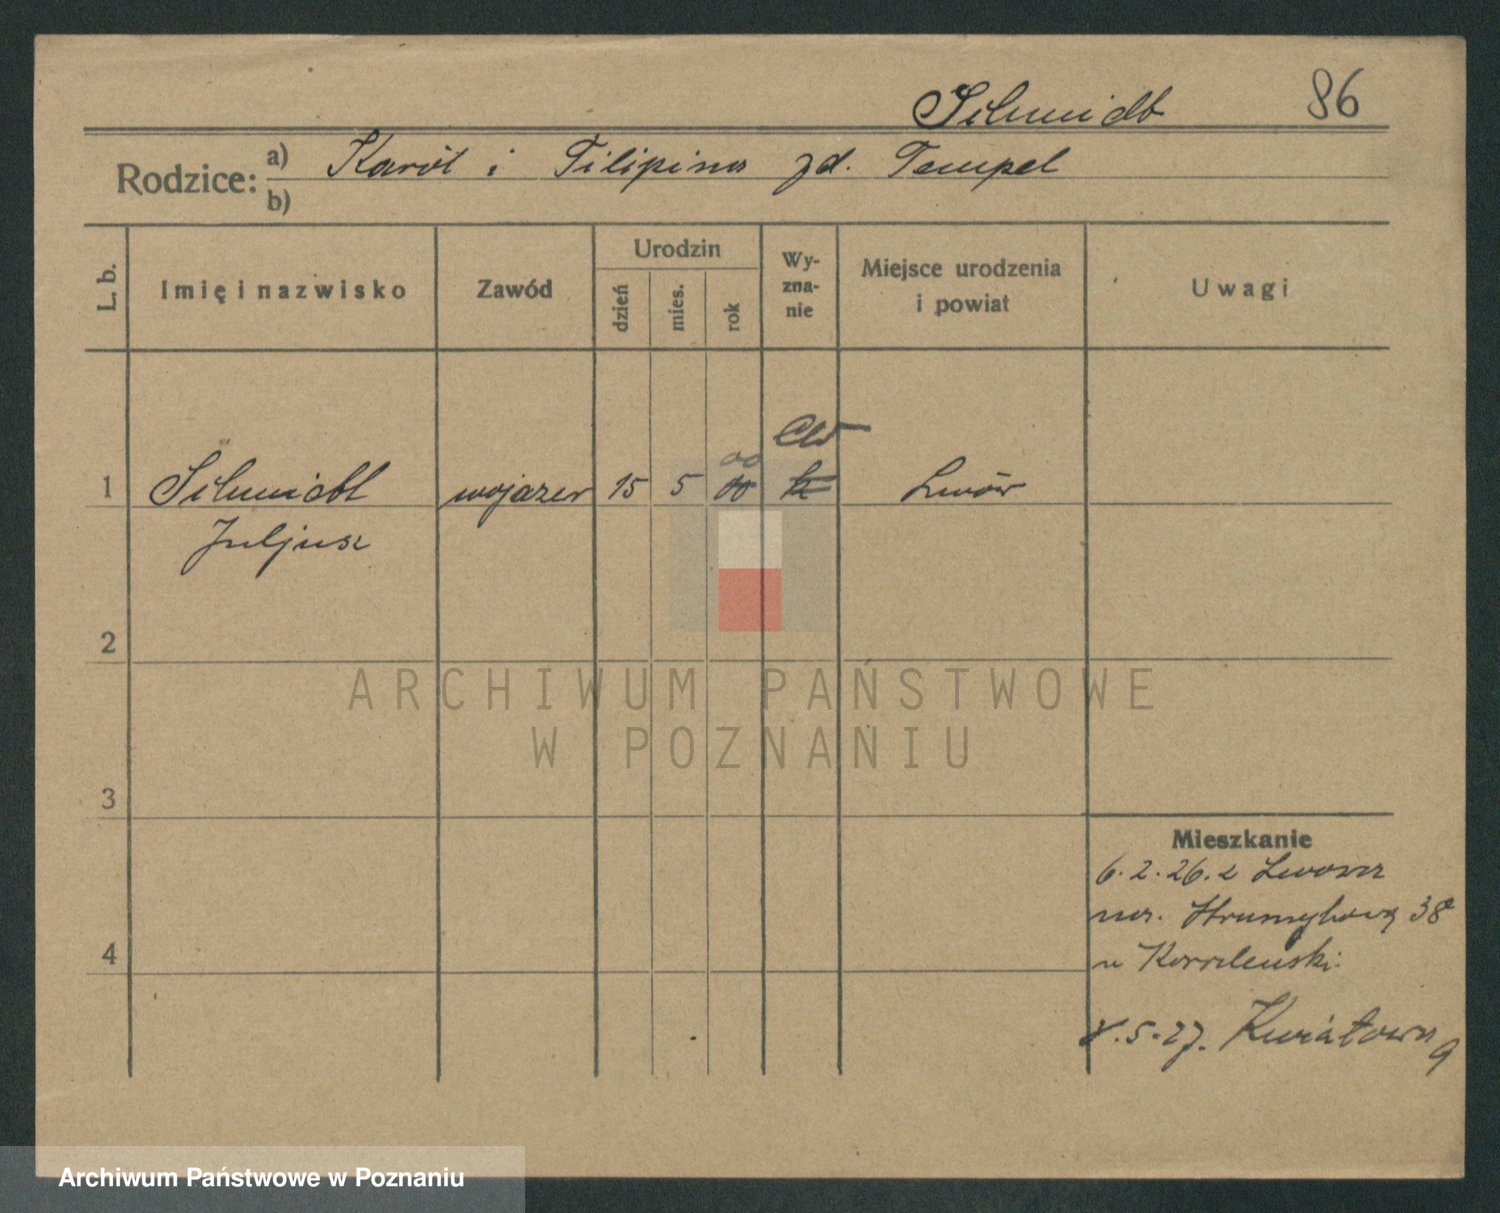 Schmidt 86
Rodzice: a) Karól i Filipina zd. Tempel
b)
L. b. Imię i nazwisko Zawód Urodzin dzień mies. rok Wyznanie Miejsce urodzenia i powiat Uwagi
00 ew
1 Schmidt wojażer 15 5 00 k Lwów
Juljusz
2
ARCHIWUM PAŃSTWOWE
W POZNANIU
3
Mieszkanie
6. 2. 26. z Lwowa
38
4 u
8. 5. 27. Kwiatowa 9
Archiwum Państwowe w Poznaniu